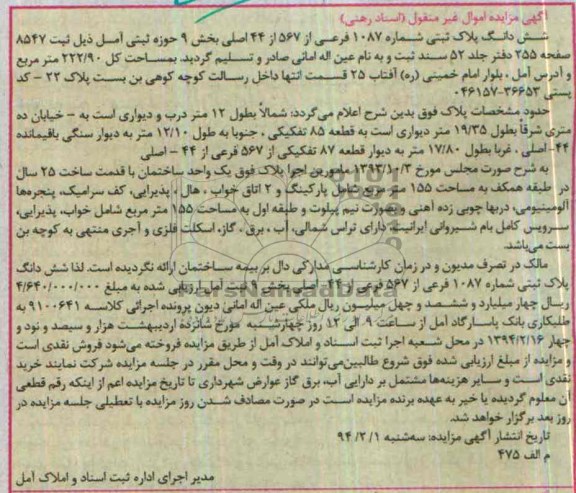 آگهی مزایده اموال غیر منقول (اسناد رهنی)
شش دانگ پلاک ثبتی شماره ۱۰۸۷ فرعی از ۵۶۷ از ۴۴ اصلی بخش ۹ حوزه ثبتی آمل ذیل ثبت ۸۵۴۷
صفحه ۲۵۵ دفتر جلد ۵۲ سند ثبت و به نام عین اله امانی صادر و تسلیم گردید. بمساحت کل ۲۲۲/۹۰ متر مربع
و آدرس آمل ، بلوار امام خمینی (ره) آفتاب ۲۵ قسمت انتها داخل رسالت کوچه کوهی بن بست پلاک ۲۳ - کد
پستی ۳۶۶۵۳-۰۴۶۱۵۷
حدود مشخصات پلاک فوق بدین شرح اعلام می‌گردد: شمالاً بطول ۱۲ متر درب و دیواری است به - خیابان ده
متری شرقاً بطول ۱۹/۳۵ متر دیواری است به قطعه ۸۵ تفکیکی ، جنوبا به طول ۱۲/۱۰ متر به دیوار سنگی باقیمانده
۴۴- اصلی ، غربا بطول ۱۷/۸۰ متر به دیوار قطعه ۸۷ تفکیکی از ۵۶۷ فرعی از ۴۴ – اصلی
به شرح صورت مجلس مورخ ۱۳۹۳/۱۰/۳ مامورین اجرا پلاک فوق یک واحد ساختمان با قدمت ساخت ۲۵ سال
در طبقه همکف به مساحت ۱۵۵ متر مربع شامل پارکینگ و ۲ اتاق خواب ، هال ، پذیرایی، کف سرامیک، پنجره‌ها
آلومینیومی، دربها چوبی زده آهنی و بصورت نیم پیلوت و طبقه اول به مساحت ۱۵۵ متر مربع شامل خواب، پذیرایی،
سرویس کامل بام شیروانی ایرانیت، دارای تراس شمالی، آب ، برق ، گاز، اسکلت فلزی و آجری منتهی به کوچه بن
بست می‌باشد.
مالک در تصرف مدیون و در زمان کارشناسی مدارکی دال بر بیمه ساختمان ارائه نگردیده است. لذا شش دانگ
پلاک ثبتی شماره ۱۰۸۷ فرعی از ۵۶۷ فرعی از ۴۴ اصلی بخش ۹ ثبت آمل ارزیابی شده به مبلغ ۴/۶۴۰/۰۰۰/۰۰۰
ریال چهار میلیارد و ششصد و چهل میلیون ریال ملکی عین اله امانی دیون پرونده اجرائی کلاسه ۹۱۰۰۶۴۱ به
طلبکاری بانک پاسارگاد آمل از ساعت ۹ الی ۱۲ روز چهارشنبه مورخ شانزده اردیبهشت هزار و سیصد و نود و
چهار ۱۳۹۴/۲/۱۶ در محل شعبه اجرا ثبت اسناد و املاک آمل از طریق مزایده فروخته می‌شود فروش نقدی است
و مزایده از مبلغ ارزیابی شده فوق شروع طالبین می‌توانند در وقت و محل مقرر در جلسه مزایده شرکت نمایند خرید
نقدی است و سایر هزینه‌ها مشتمل بر دارایی آب، برق گاز عوارض شهرداری تا تاریخ مزایده اعم از اینکه رقم قطعی
آن معلوم گردیده یا خیر به عهده برنده مزایده است در صورت مصادف شدن روز مزایده با تعطیلی جلسه مزایده در
روز بعد برگزار خواهد شد.
تاریخ انتشار آگهی مزایده: سه‌شنبه ۹۴/۲/۱
م الف ۴۷۵
مدیر اجرای اداره ثبت اسناد و املاک آمل